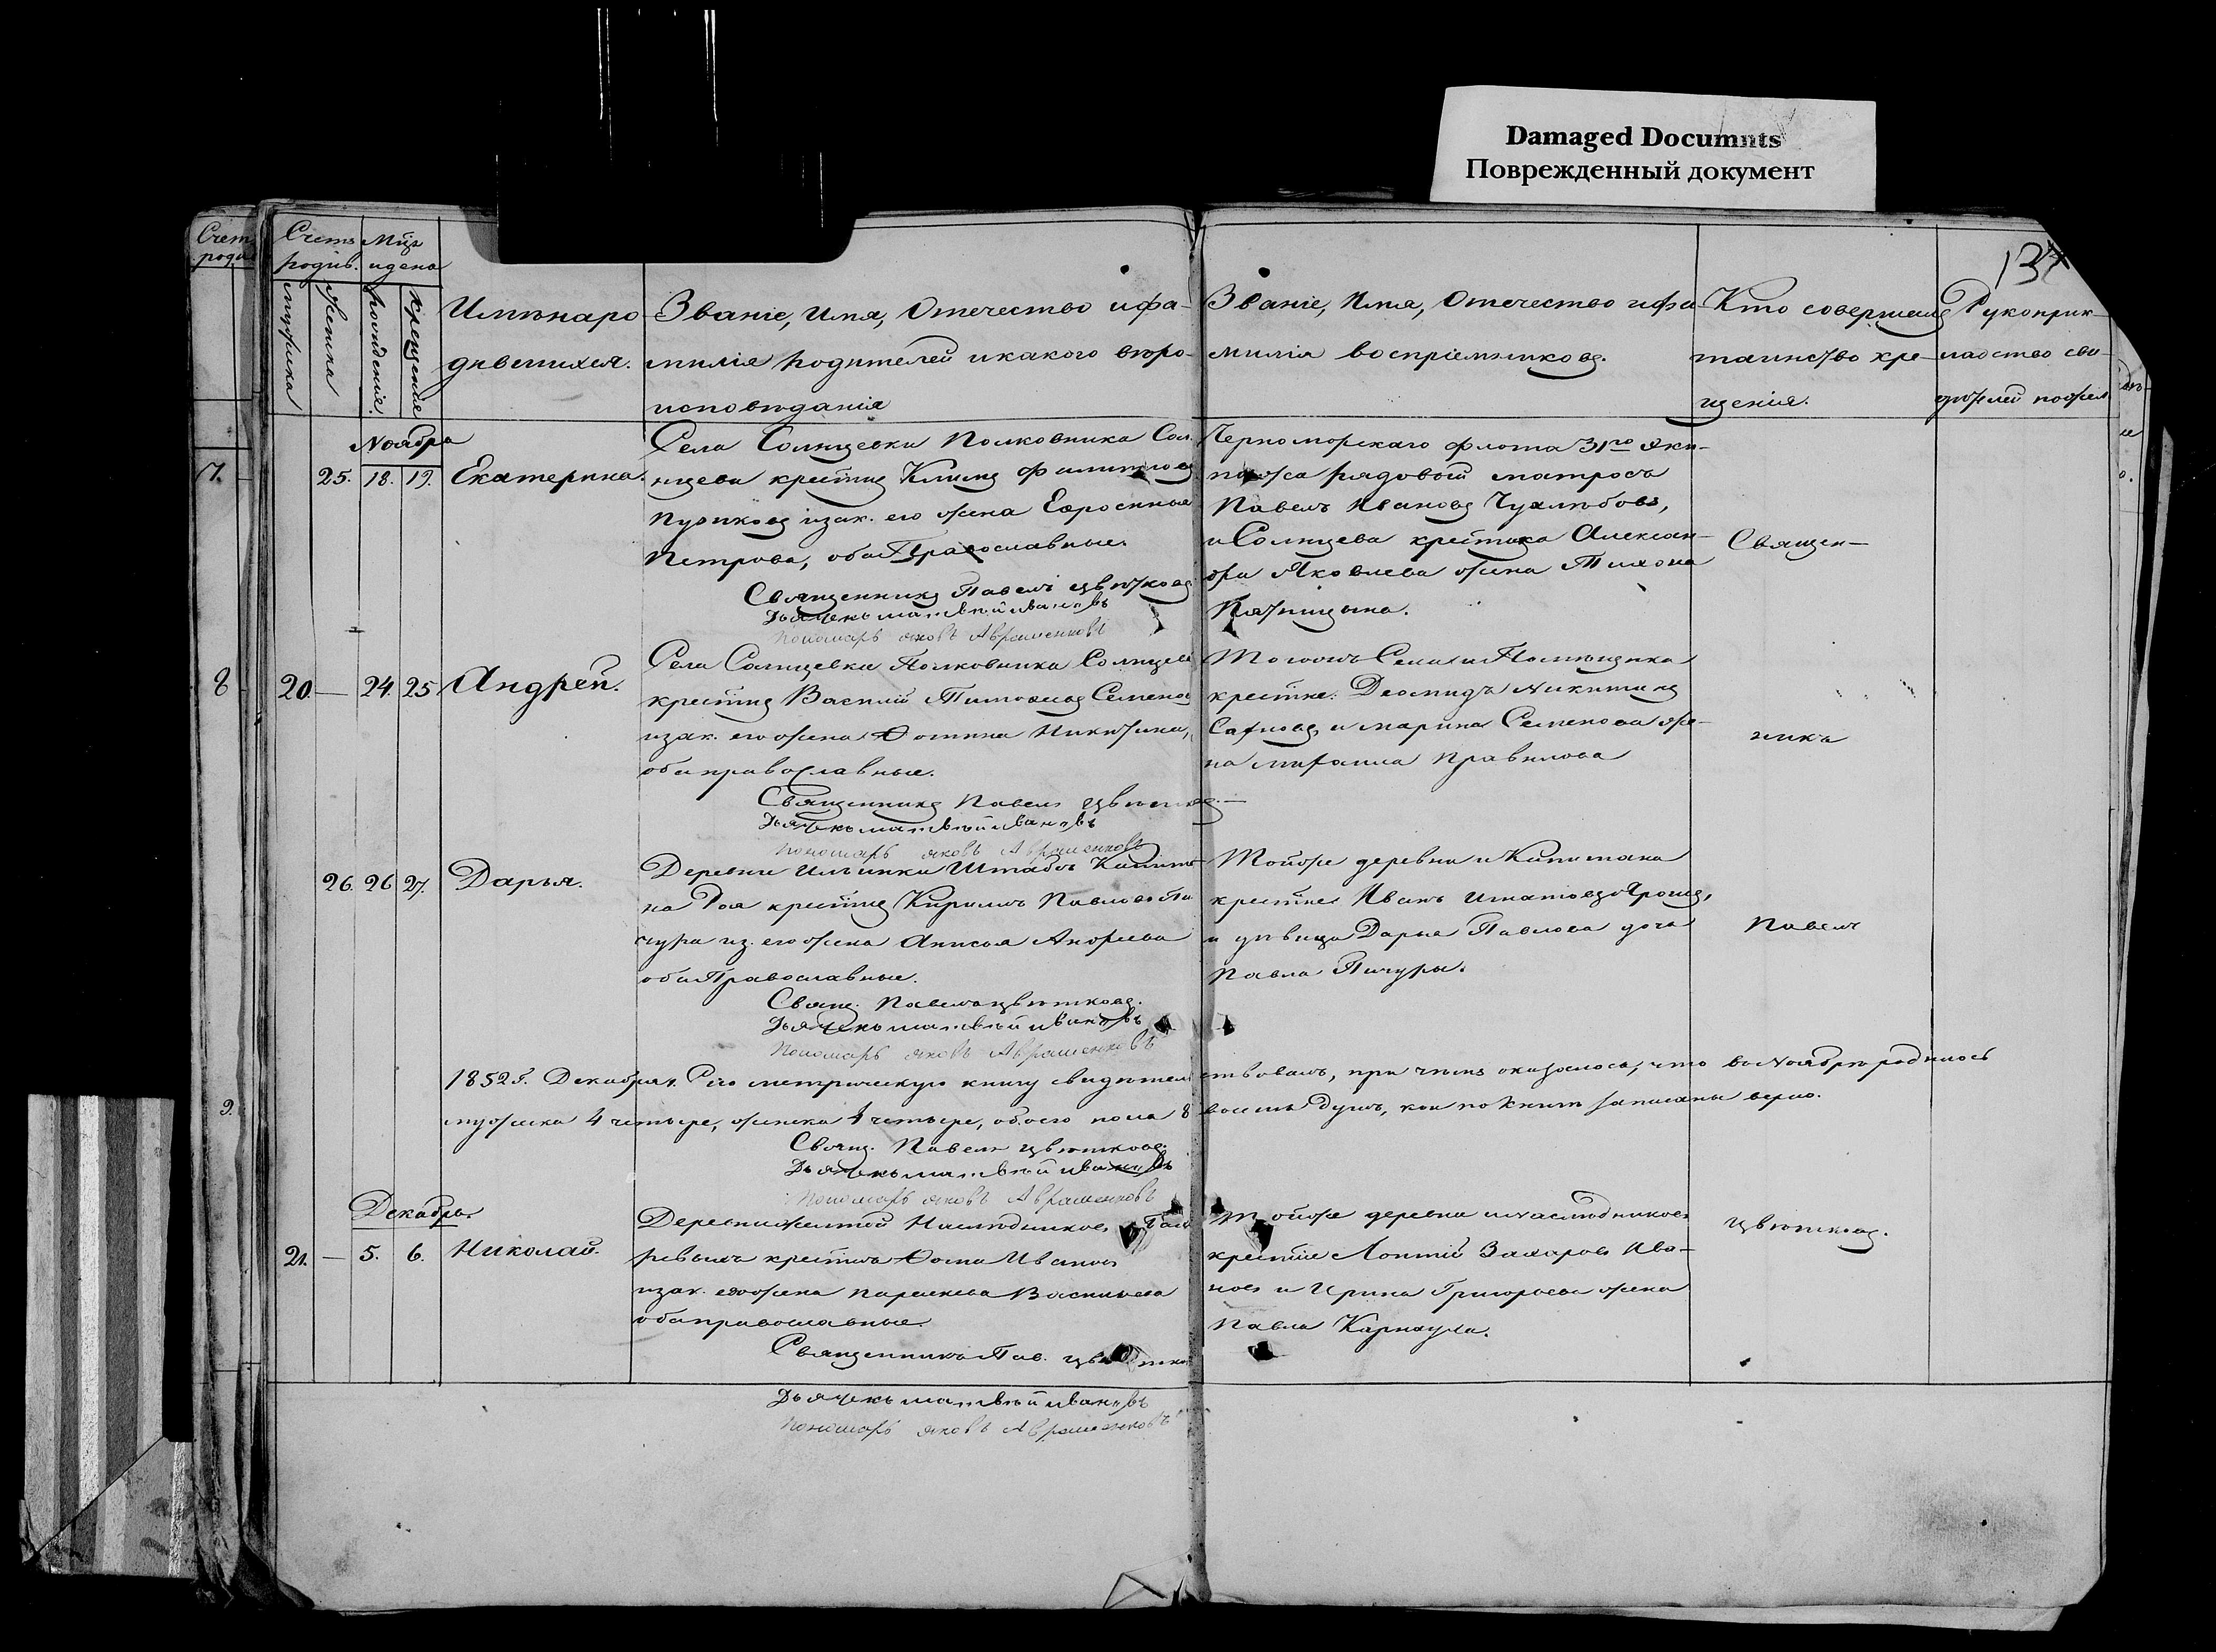 Damaged Documnts
Поврежденный документ
137
Счетъ родив.
Мцъ и день
мужеска
женска
рожденіе.
крещеніе
Имѣна ро-
дившихся.
Званіе, Имя, Отечество и фа-
миліе родителей и какого вѣро-
исповѣданія
Званіе, Имя, Отечество и фа-
милія воспріемниковъ.
Кто совершалъ
таинство кре-
щенія.
Рукоприк-
ладство сви-
дѣтелей по жел
Ноября
25. 18. 19. Екатерина.
Села Солнцевки Полковника Сол-
нцева крестінъ Климъ Филиповъ
Пузиковъ и зак. его жена Евросинья
Петрова, оба Православные.
Священникъ Павелъ Цвѣтковъ
Дьячекъ Матвѣй Ивановъ
Пономарь Яковъ Авраменковъ
Черноморскаго флота 31го Эки-
пажа рядовой матросъ
Павелъ Ивановъ
и Солнцева крестінка Алексан-
дра Яковлева жена Тихона
Пятницына.
Священ-
20. — 24. 25 Андрей.
Села Солнцевки Полковника Солнцева
крестінъ Василій Тимофеевъ Семенов
и зак. его жена Фотина Никитина,
оба православные.
Священникъ Павелъ Цвѣтковъ.
Дьячекъ Матвѣй Ивановъ
Пономарь Яковъ Авраменковъ
Тогожъ Села и Помѣщика
крестіне: Деомидъ Никитинъ
и Марина Семенова же-
на Михаила Правилова
никъ
26. 26 27. Дарья.
Деревни Ильинки Штабсъ Капита-
на Роя крестінъ Кирилъ Павловъ Пи
чура и з. его жена Анисья Андреева
оба Православные.
Свящ. Павелъ Цвѣтковъ.
Дьячекъ Матвѣй Ивановъ
Пономарь Яковъ Авраменковъ
Тойже деревни и Капитана
крестіне Иванъ Игнатовъ Ярошъ,
и дѣвица Дарья Павлова дочь
Павла Пичуры.
Павелъ
1852 г. Декабря 1. Сію метрическую книгу свидѣтельствовалъ, при чемъ оказалось, что въ Ноябрѣ родилось
мужеска 4 четыре, женска 4 четыре, обоего пола 8 восемь душъ, кои по книгѣ записаны верно.
Свящ. Павелъ Цвѣтковъ.
Дьячекъ Матвѣй Ивановъ
Пономарь Яковъ Авраменковъ
Декабря
21. — 5. 6. Николай.
Деревни Желтой Наслѣдниковъ
крестінъ Фома Ивановъ
и зак. его жена Параскева Васильева
оба православные.
Священникъ Пав. Цвѣтков
Дьячекъ Матвѣй Ивановъ
Пономарь Яковъ Авраменковъ
Тойже деревни и наслѣдниковъ
крестіне Леонтій Захаровъ Ива-
новъ и Ирина Григорьева жена
Павла Карнауха.
Цвѣтковъ.